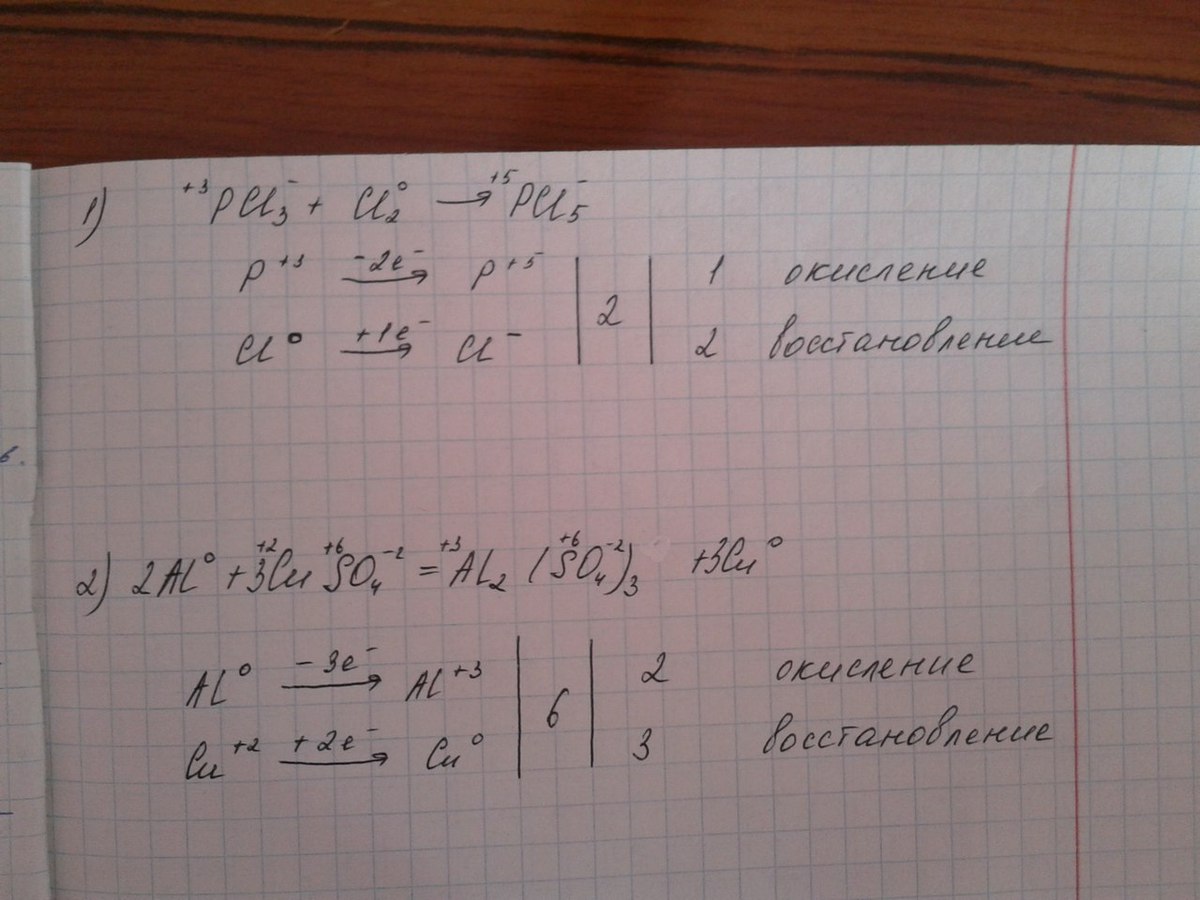 1) +3PCl3- + Cl2° → +5PCl5-
P+3 -2e-→ P+5 | 2 | 1 окисление
Cl° +1e-→ Cl- 2 восстановление
2) 2Al° + 3Cu+2S+6O4-2 = Al2+3(S+6O4-2)3 + 3Cu°
Al° -3e-→ Al+3 | 6 | 2 окисление
Cu+2 +2e-→ Cu° 3 восстановление